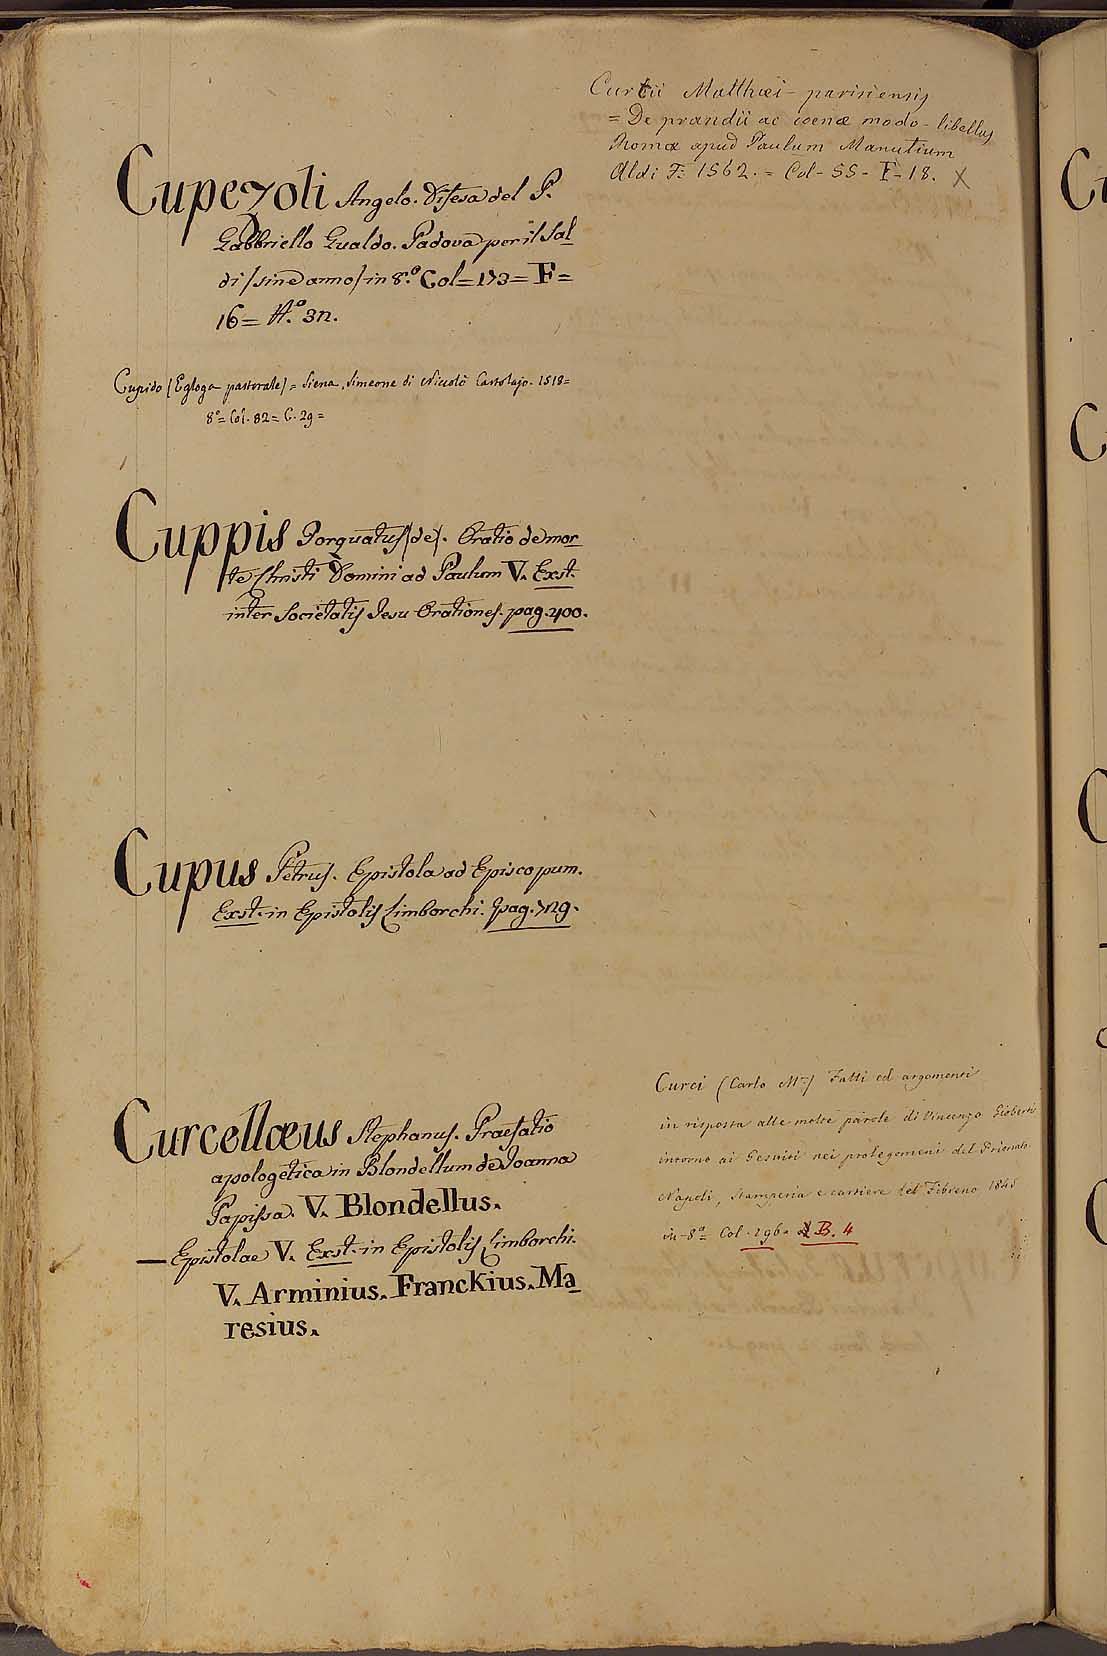 Curtii Matthæi - parisiensis
= De prandii ac cœnæ modo - libellus
Romæ apud Paulum Manutium
Aldi F. 1562. = Col - 55 - F - 18. X
Cupezoli Angelo. Difesa del P.
Gabbriello Gualdo. Padova per il Sal
di /sine anno/ in 8.º Col = 173 = F =
16 = A.º 3n.
Cupido (Egloga pastorale) = Siena, Simeone di Nicolò Cartolajo. 1518 =
8º = Col. 82 = C. 29 =
Cuppis Torquatus (de). Oratio de mor
te Christi Domini ad Paulum V. Exst.
inter Societatis Jesu Orationes. pag. 400.
Cupus Petrus. Epistola ad Episcopum.
Exst. in Epistolis Limborchi. pag. 729.
Curcellæus Stephanus. Praefatio
apologetica in Blondellum de Joanna
Papissa. V. Blondellus.
— Epistolae V. Exst. in Epistolis Limborchi.
V. Arminius. Franckius. Ma
resius.
Curci (Carlo M.ª) Fatti ed argomenti
in risposta alle molte parole di Vincenzo Gioberti
intorno ai Gesuiti nei prolegomeni del Primato
Napoli, Stamperia e cartiere del Fibreno 1845
in-8º Col. 296 = B. 4